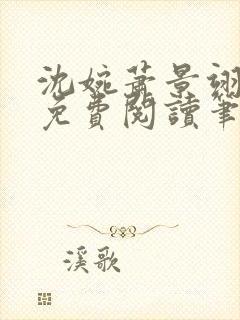 沈婉萧景翊
免費閱讀筆
溪歌